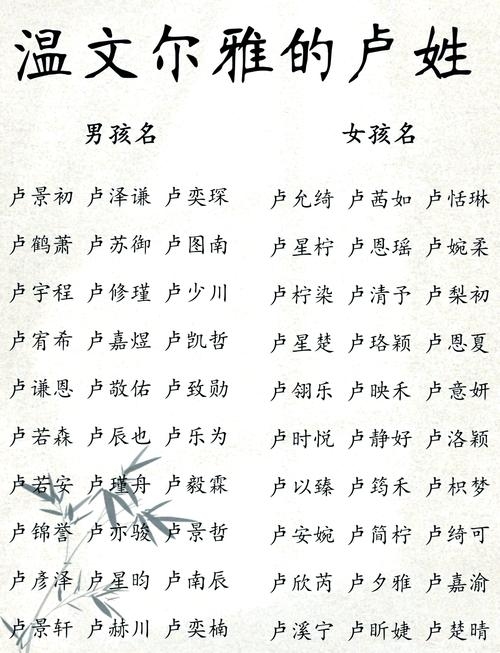 温文尔雅的卢姓
男孩名 女孩名
卢景初 卢泽谦 卢奕琛 卢允绮 卢茜如 卢恬琳
卢鹤萧 卢苏御 卢图南 卢星柠 卢恩瑶 卢婉柔
卢宇程 卢修瑾 卢少川 卢柠染 卢清予 卢梨初
卢宥希 卢嘉煜 卢凯哲 卢星楚 卢珞颖 卢恩夏
卢谦恩 卢敬佑 卢致勋 卢翎乐 卢映禾 卢意妍
卢若森 卢辰也 卢乐为 卢时悦 卢静好 卢洛颖
卢若安 卢瑾舟 卢毅霖 卢以臻 卢筠禾 卢枳梦
卢锦誉 卢亦骏 卢景哲 卢安婉 卢简柠 卢绮可
卢彦泽 卢星昀 卢南辰 卢欣芮 卢夕雅 卢嘉渝
卢景轩 卢赫川 卢奕楠 卢溪宁 卢昕婕 卢楚晴